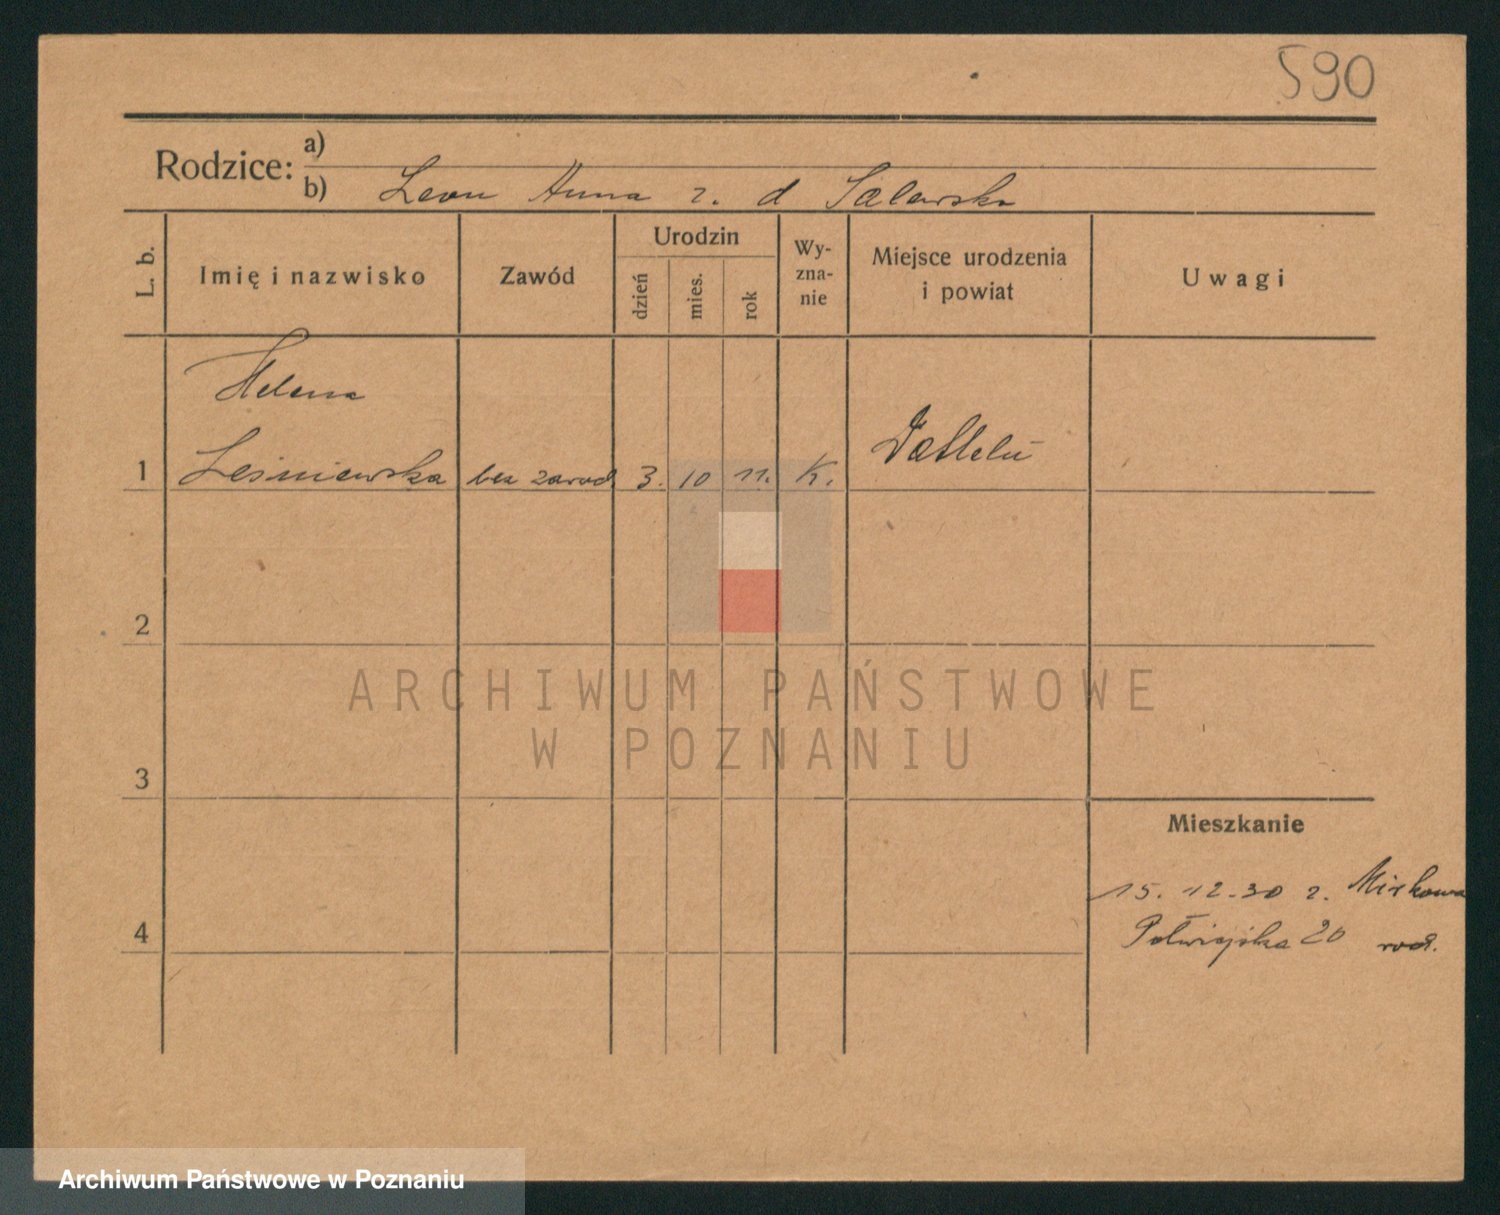 590
Rodzice: a)
b) Leon Anna z. d
L. b.
Imię i nazwisko
Zawód
Urodzin
dzień
mies.
rok
Wy-
zna-
nie
Miejsce urodzenia
i powiat
Uwagi
Helena
1 Leśniewska bez zawod 3. 10 11. K. Datteln
2
3
4
Mieszkanie
15. 12. 30 z.
Półwiejska 20 rod.
ARCHIWUM PAŃSTWOWE
W POZNANIU
Archiwum Państwowe w Poznaniu